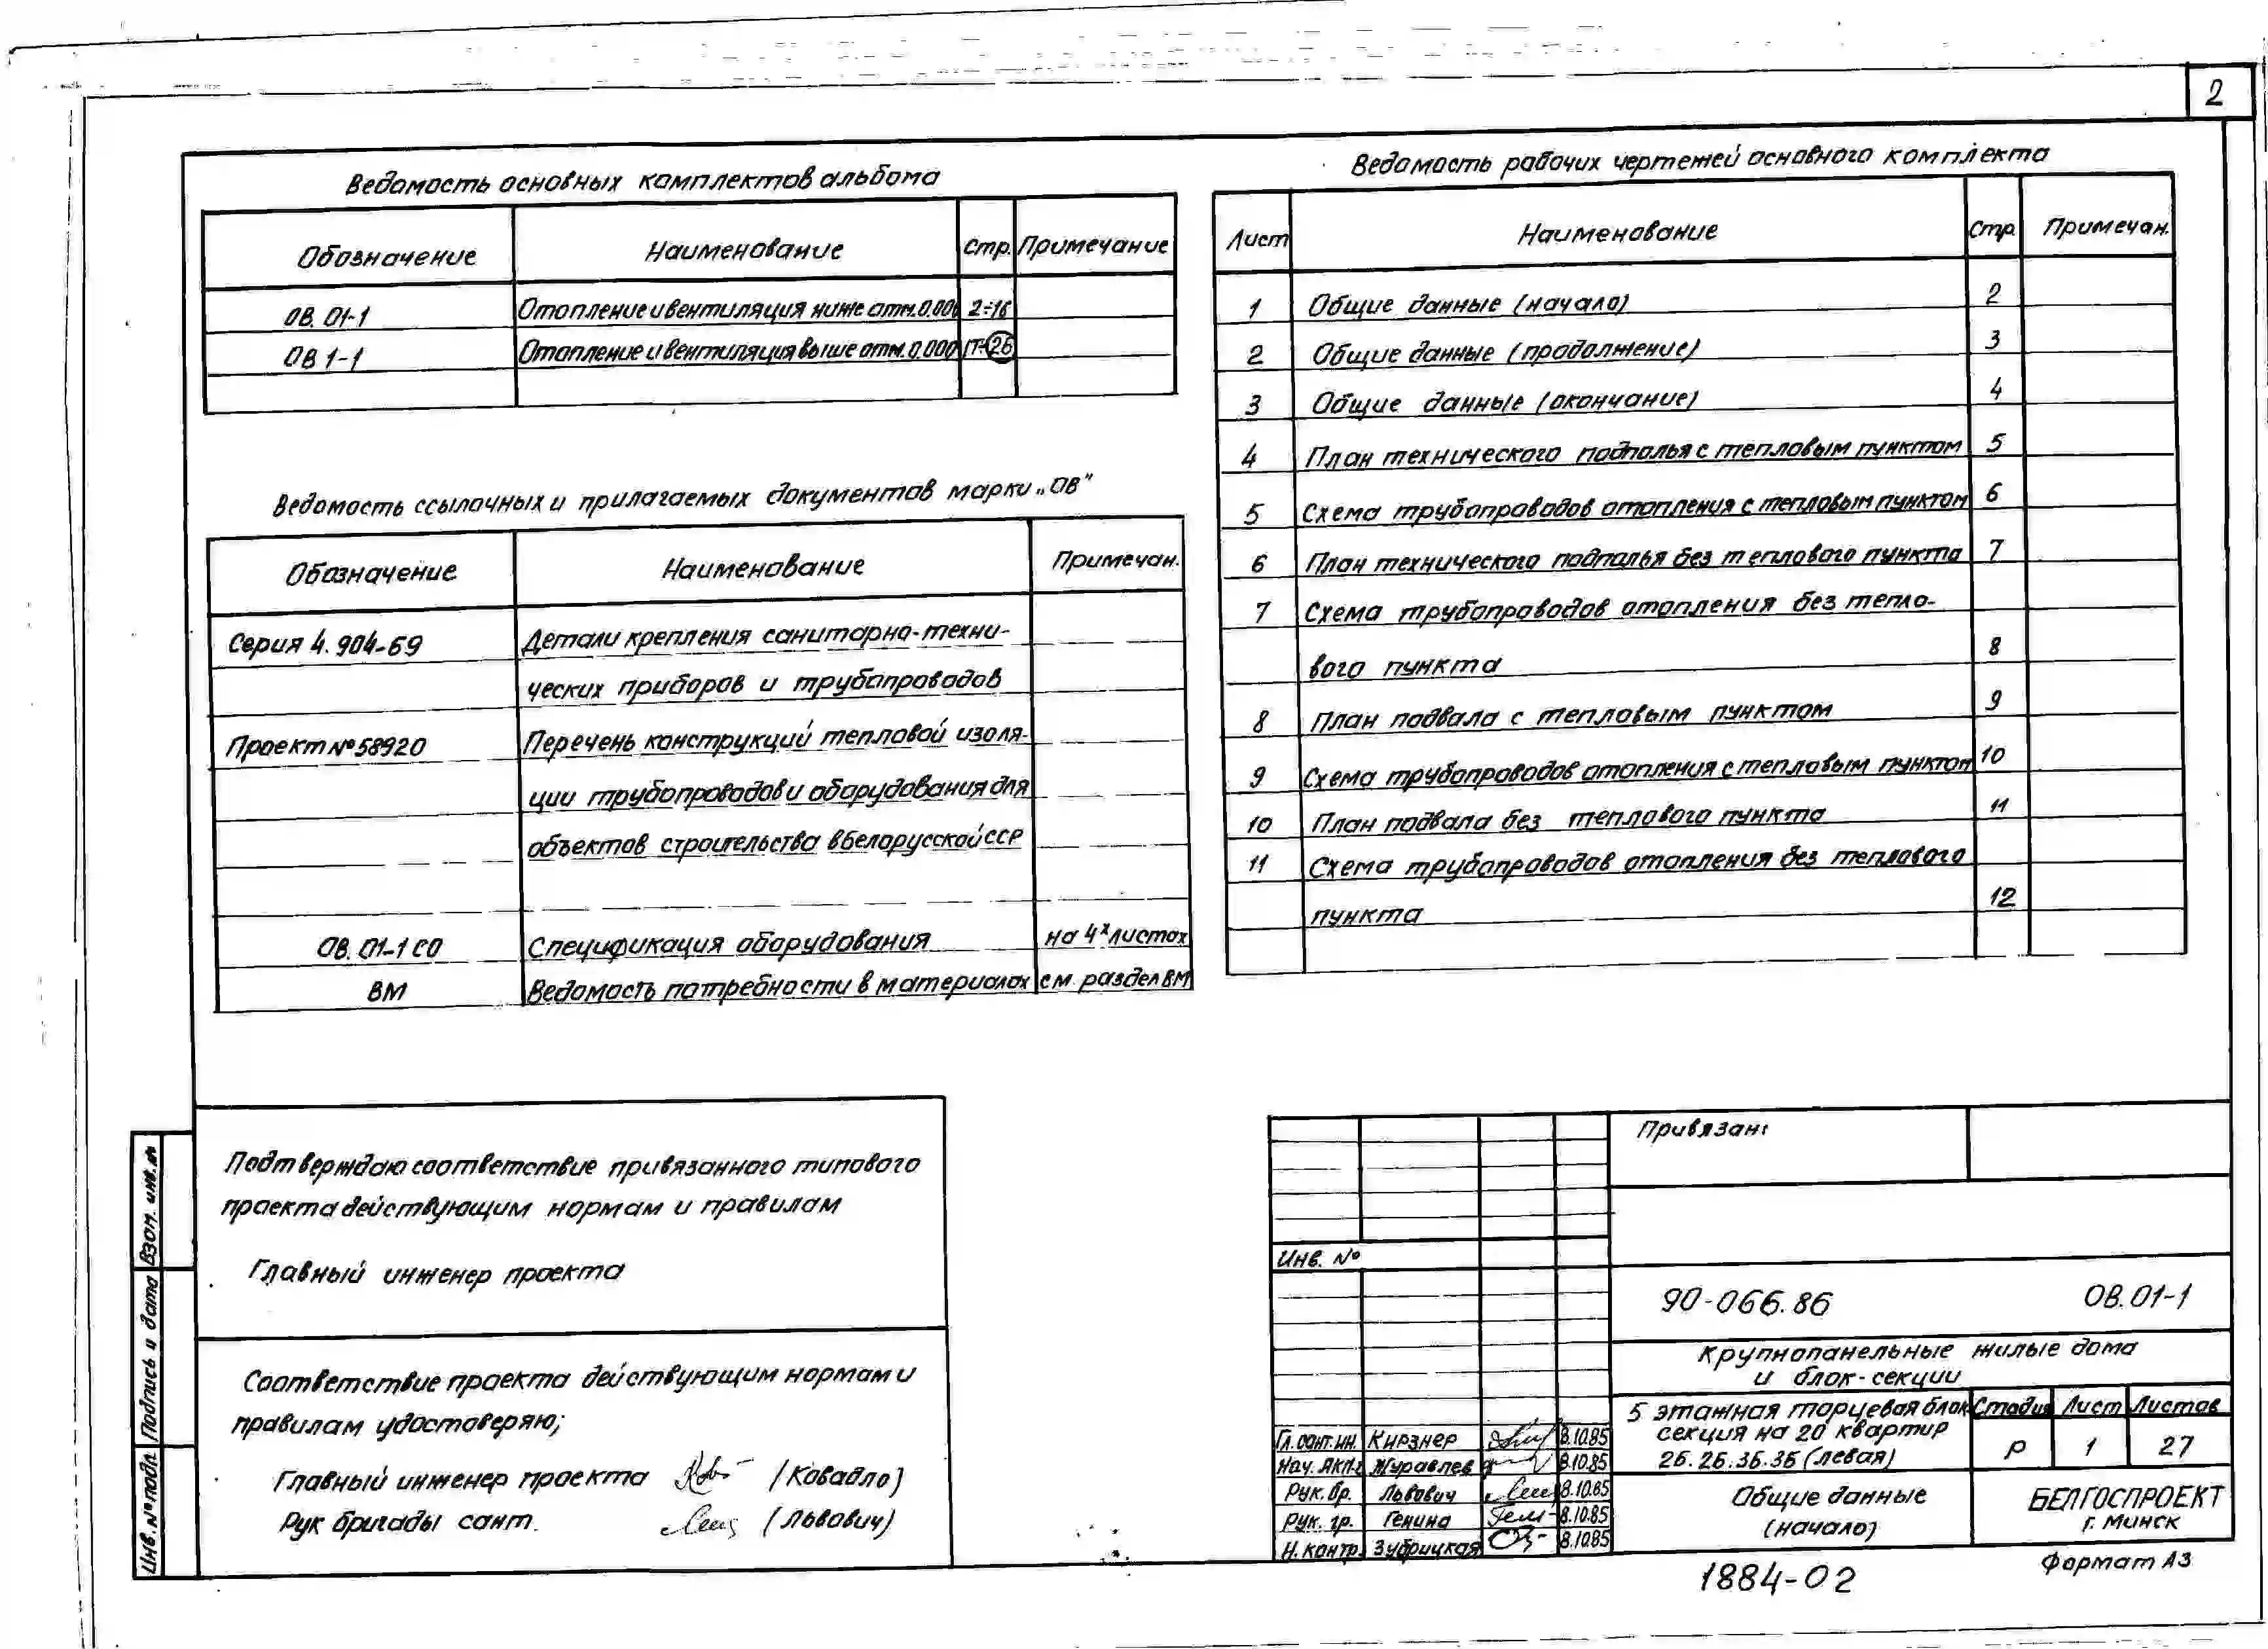 2
Ведомость основных комплектов альбома
Обозначение Наименование Стр. Примечание
ОВ. 01-1 Отопление и вентиляция ниже отм. 0.000 2÷16
ОВ 1-1 Отопление и вентиляция выше отм. 0.000 17÷26
Ведомость ссылочных и прилагаемых документов марки „ОВ"
Обозначение Наименование Примечан.
Серия 4.904-69 Детали крепления санитарно-техни-
ческих приборов и трубопроводов
Проект №58920 Перечень конструкций тепловой изоля-
ции трубопроводов и оборудования для
объектов строительства в Белорусской ССР
ОВ. 01-1 СО Спецификация оборудования на 4х листах
ВМ Ведомость потребности в материалах см. раздел ВМ
Ведомость рабочих чертежей основного комплекта
Лист Наименование Стр. Примечан.
1 Общие данные (начало) 2
2 Общие данные (продолжение) 3
3 Общие данные (окончание) 4
4 План технического подполья с тепловым пунктом 5
5 Схема трубопроводов отопления с тепловым пунктом 6
6 План технического подполья без теплового пункта 7
7 Схема трубопроводов отопления без тепло-
вого пункта 8
8 План подвала с тепловым пунктом 9
9 Схема трубопроводов отопления с тепловым пунктом 10
10 План подвала без теплового пункта 11
11 Схема трубопроводов отопления без теплового
пункта 12
Подтверждаю соответствие привязанного типового
проекта действующим нормам и правилам
Главный инженер проекта
Соответствие проекта действующим нормам и
правилам удостоверяю;
Главный инженер проекта (Ковадло)
Рук бригады сант. (Львович)
Взам. инв. №
Подпись и дата
Инв. № подл.
Привязан:
Инв. №
90-066.86 ОВ.01-1
Крупнопанельные жилые дома
и блок-секции
5 этажная торцевая блок
секция на 20 квартир
2Б.2Б.3Б.3Б (левая)
Стадия Лист Листов
Р 1 27
Гл. сант. ин. Кирзнер 8.10.85
Нач. АКМ-2 Журавлев 8.10.85
Рук. бр. Львович 8.10.85
Рук. гр. Генина 8.10.85
Н. контр. Зубрицкая 8.10.85
Общие данные
(начало)
БЕЛГОСПРОЕКТ
г. Минск
1884-02
Формат А3